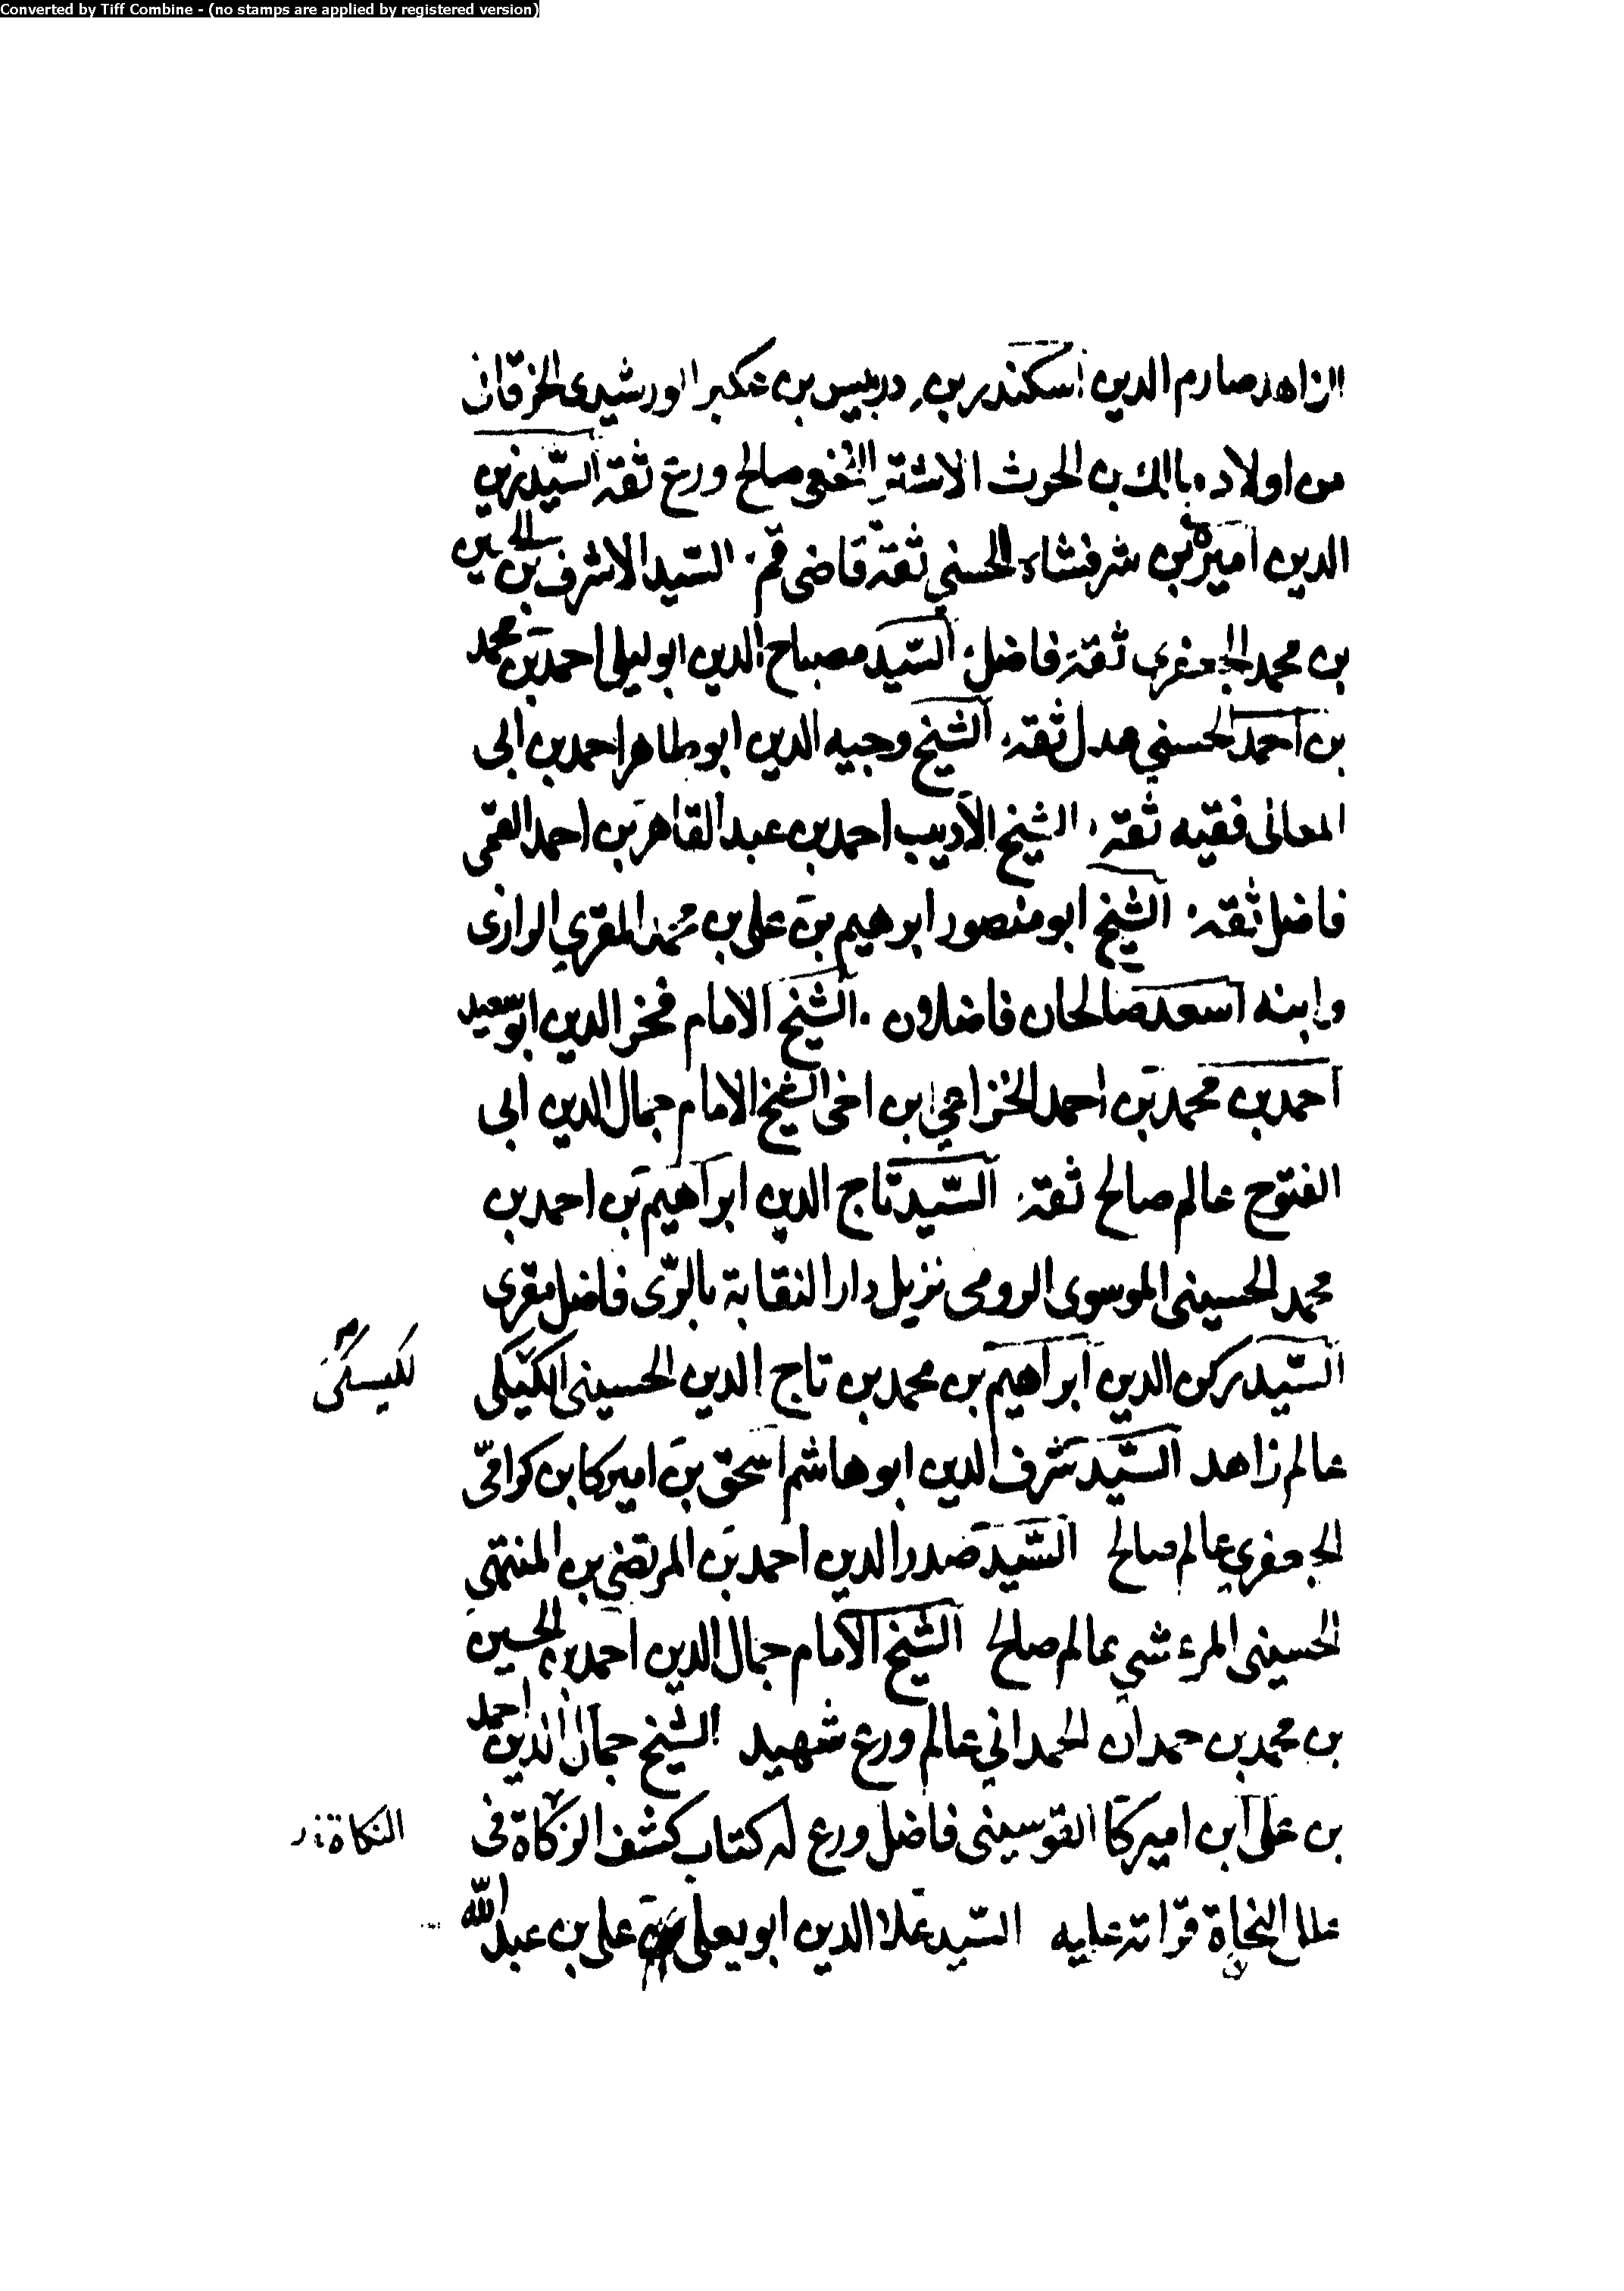 Converted by Tiff Combine - (no stamps are applied by registered version)
الزاهد صارم الدين اسكندر بن دربيس بن عكبر الورشيدى الخرقانى
من اولاد مالك بن الحرث الاشتر النخعى صالح ورع ثقة السّيد زين
الدين اميرة بن شرفشاه الحسنى ثقة قاضى قم السّيد الاشرف بن الحسين
بن محمد الجعفرى ثقة فاضل السّيد مصباح الدين ابو ليلى احمد بن محمد
بن احمد الحسنى عدل ثقة الشيخ وجيه الدين ابو طاهر احمد بن ابى
المعالى فقيه ثقة الشيخ الاديب احمد بن عبد القاهر بن احمد القمى
فاضل ثقة الشيخ ابو منصور ابرهيم بن على بن محمد المقرى الرازى
وابنه اسعد صالحان فاضلان الشيخ الامام فخر الدين ابو سعيد
احمد بن محمد بن احمد الخزاعى ابن اخى الشيخ الامام جمال الدين ابى
الفتوح عالم صالح ثقة السّيد تاج الدين ابراهيم بن احمد بن
محمد الحسينى الموسوى الرومى نزيل دار النقابة بالرّى فاضل مقرى
السّيد ركن الدين ابراهيم بن محمد بن تاج الدين الحسينى الكيكى
عالم زاهد السّيد شرف الدين ابو هاشم اسحق بن اميركا بن كرامى
الجعفرى عالم صالح السّيد صدر الدين احمد بن المرتضى بن المنتهى
الحسينى المرعشى عالم صالح الشيخ الامام جمال الدين احمد بن الحسين
بن محمد بن حمدان الحمدانى عالم ورع شهيد الشيخ جمال الدين احمد
بن على ابن اميركا القوسينى فاضل ورع له كتاب كشف الزكاة فى
النكاة
علل النحاة قرأته عليه السّيد علاء الدين ابو يعلى على بن عبد الله